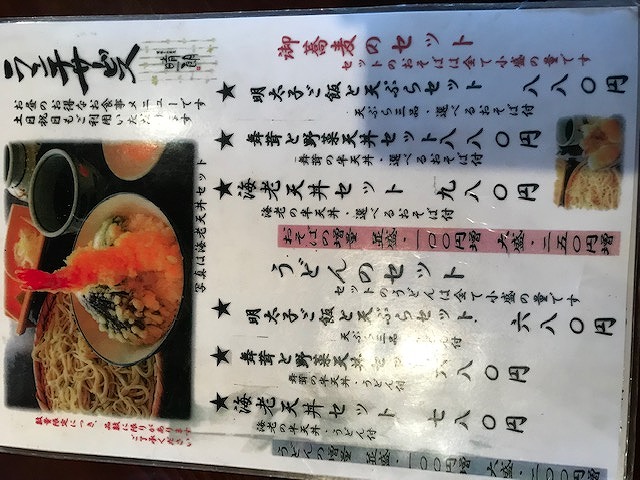 ランチサービス
晴朗
お昼のお得なお食事メニューです
土日祝日もご利用いただけます
写真は海老天丼セット
数量限定につき、品数に限りがあります
ご了承ください
御蕎麦のセット
セットのおそばは全て小盛の量です
★ 明太子ご飯と天ぷらセット 八八〇円
天ぷら三品・選べるおそば付
★ 舞茸と野菜天丼セット 八八〇円
舞茸の半天丼・選べるおそば付
★ 海老天丼セット 九八〇円
海老の半天丼・選べるおそば付
おそばの増量 並盛・一〇〇円増 大盛・二五〇円増
うどんのセット
セットのうどんは全て小盛の量です
★ 明太子ご飯と天ぷらセット 六八〇円
天ぷら三品
★ 舞茸と野菜天丼セット 八〇円
舞茸の半天丼・うどん付
★ 海老天丼セット 七八〇円
海老の半天丼・うどん付
うどんの増量 並盛・一〇〇円増 大盛・二〇〇円増